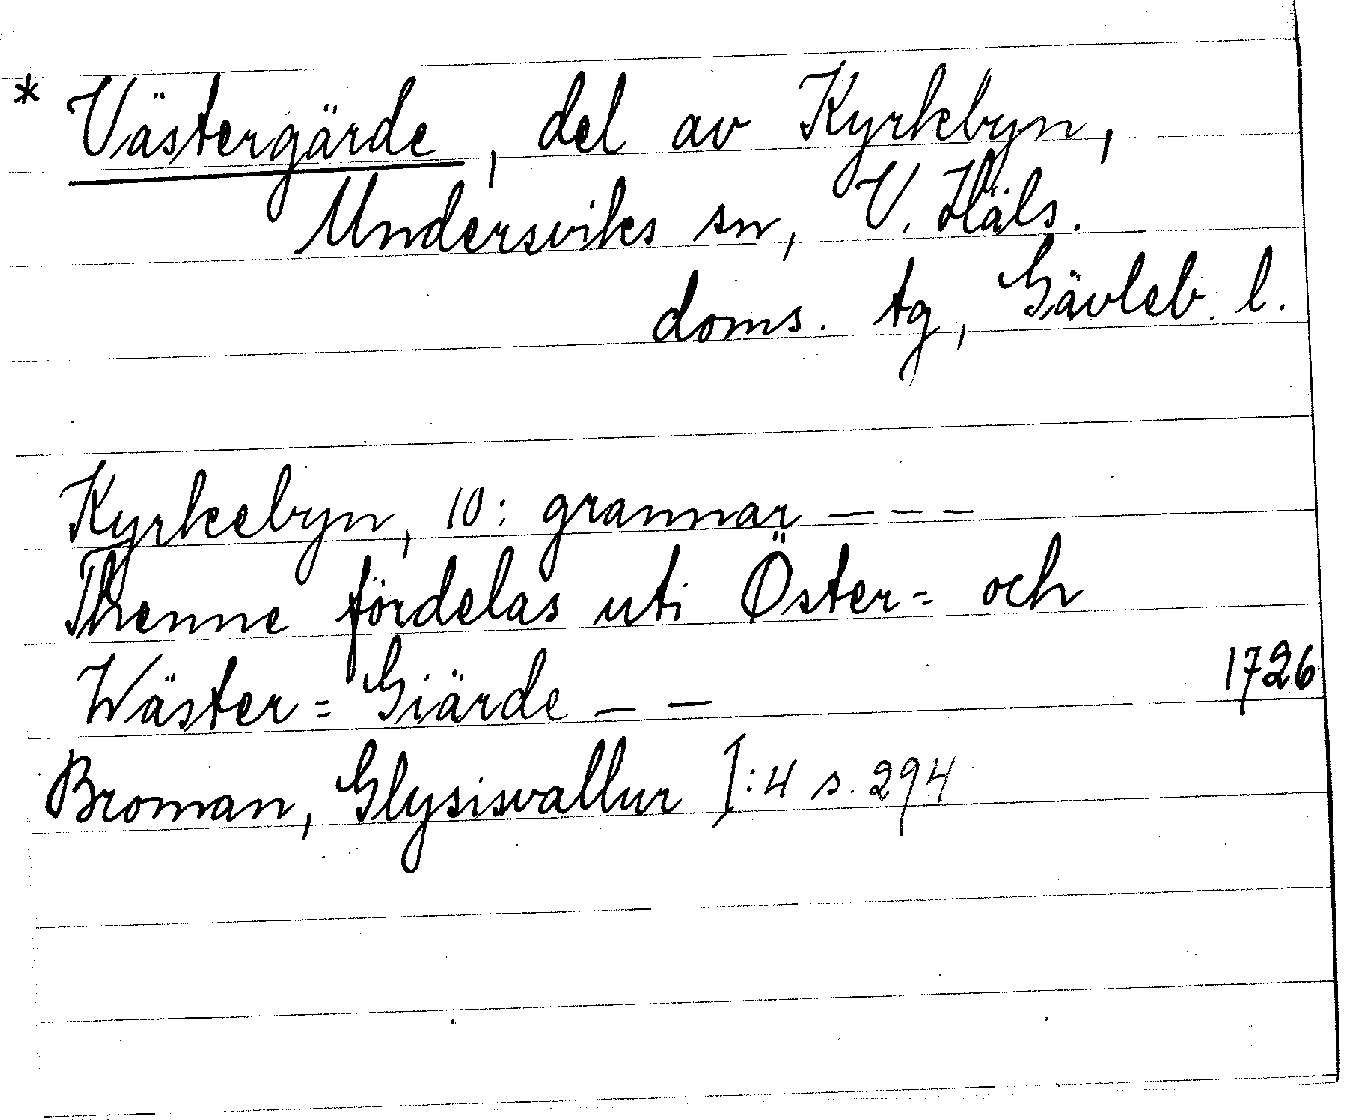 * Västergärde, del av Kyrkbyn,
Undersviks sn, V. Häls.
doms. tg, Gävleb. l.
Kyrkebyn, 10: grannar – – –
Thenne fördelas uti Öster= och
Wäster= Giärde – – 1726
Broman, Glysisvallur I:4 s. 294